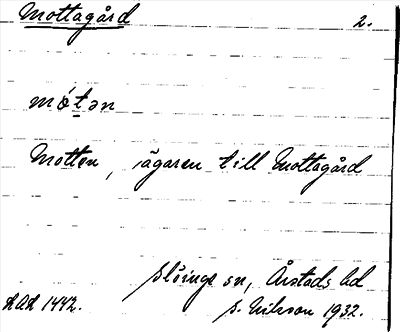 Mottagård 2.
mótən
Motten, ägaren till Mottagård
Slöinge sn, Årstads hd
AAA 1442. S. Nilsson 1932.